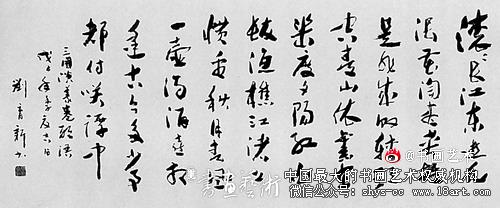 滚滚长江东逝水
浪花淘尽英雄
是非成败转头
空青山依旧在
几度夕阳红白
发渔樵江渚上
惯看秋月春风
一壶浊酒喜相
逢古今多少事
都付笑谈中
三国演义卷头语
@书画艺术
中国最大的书画艺术权威机构
微信公众号：shys-cc www.18art.com